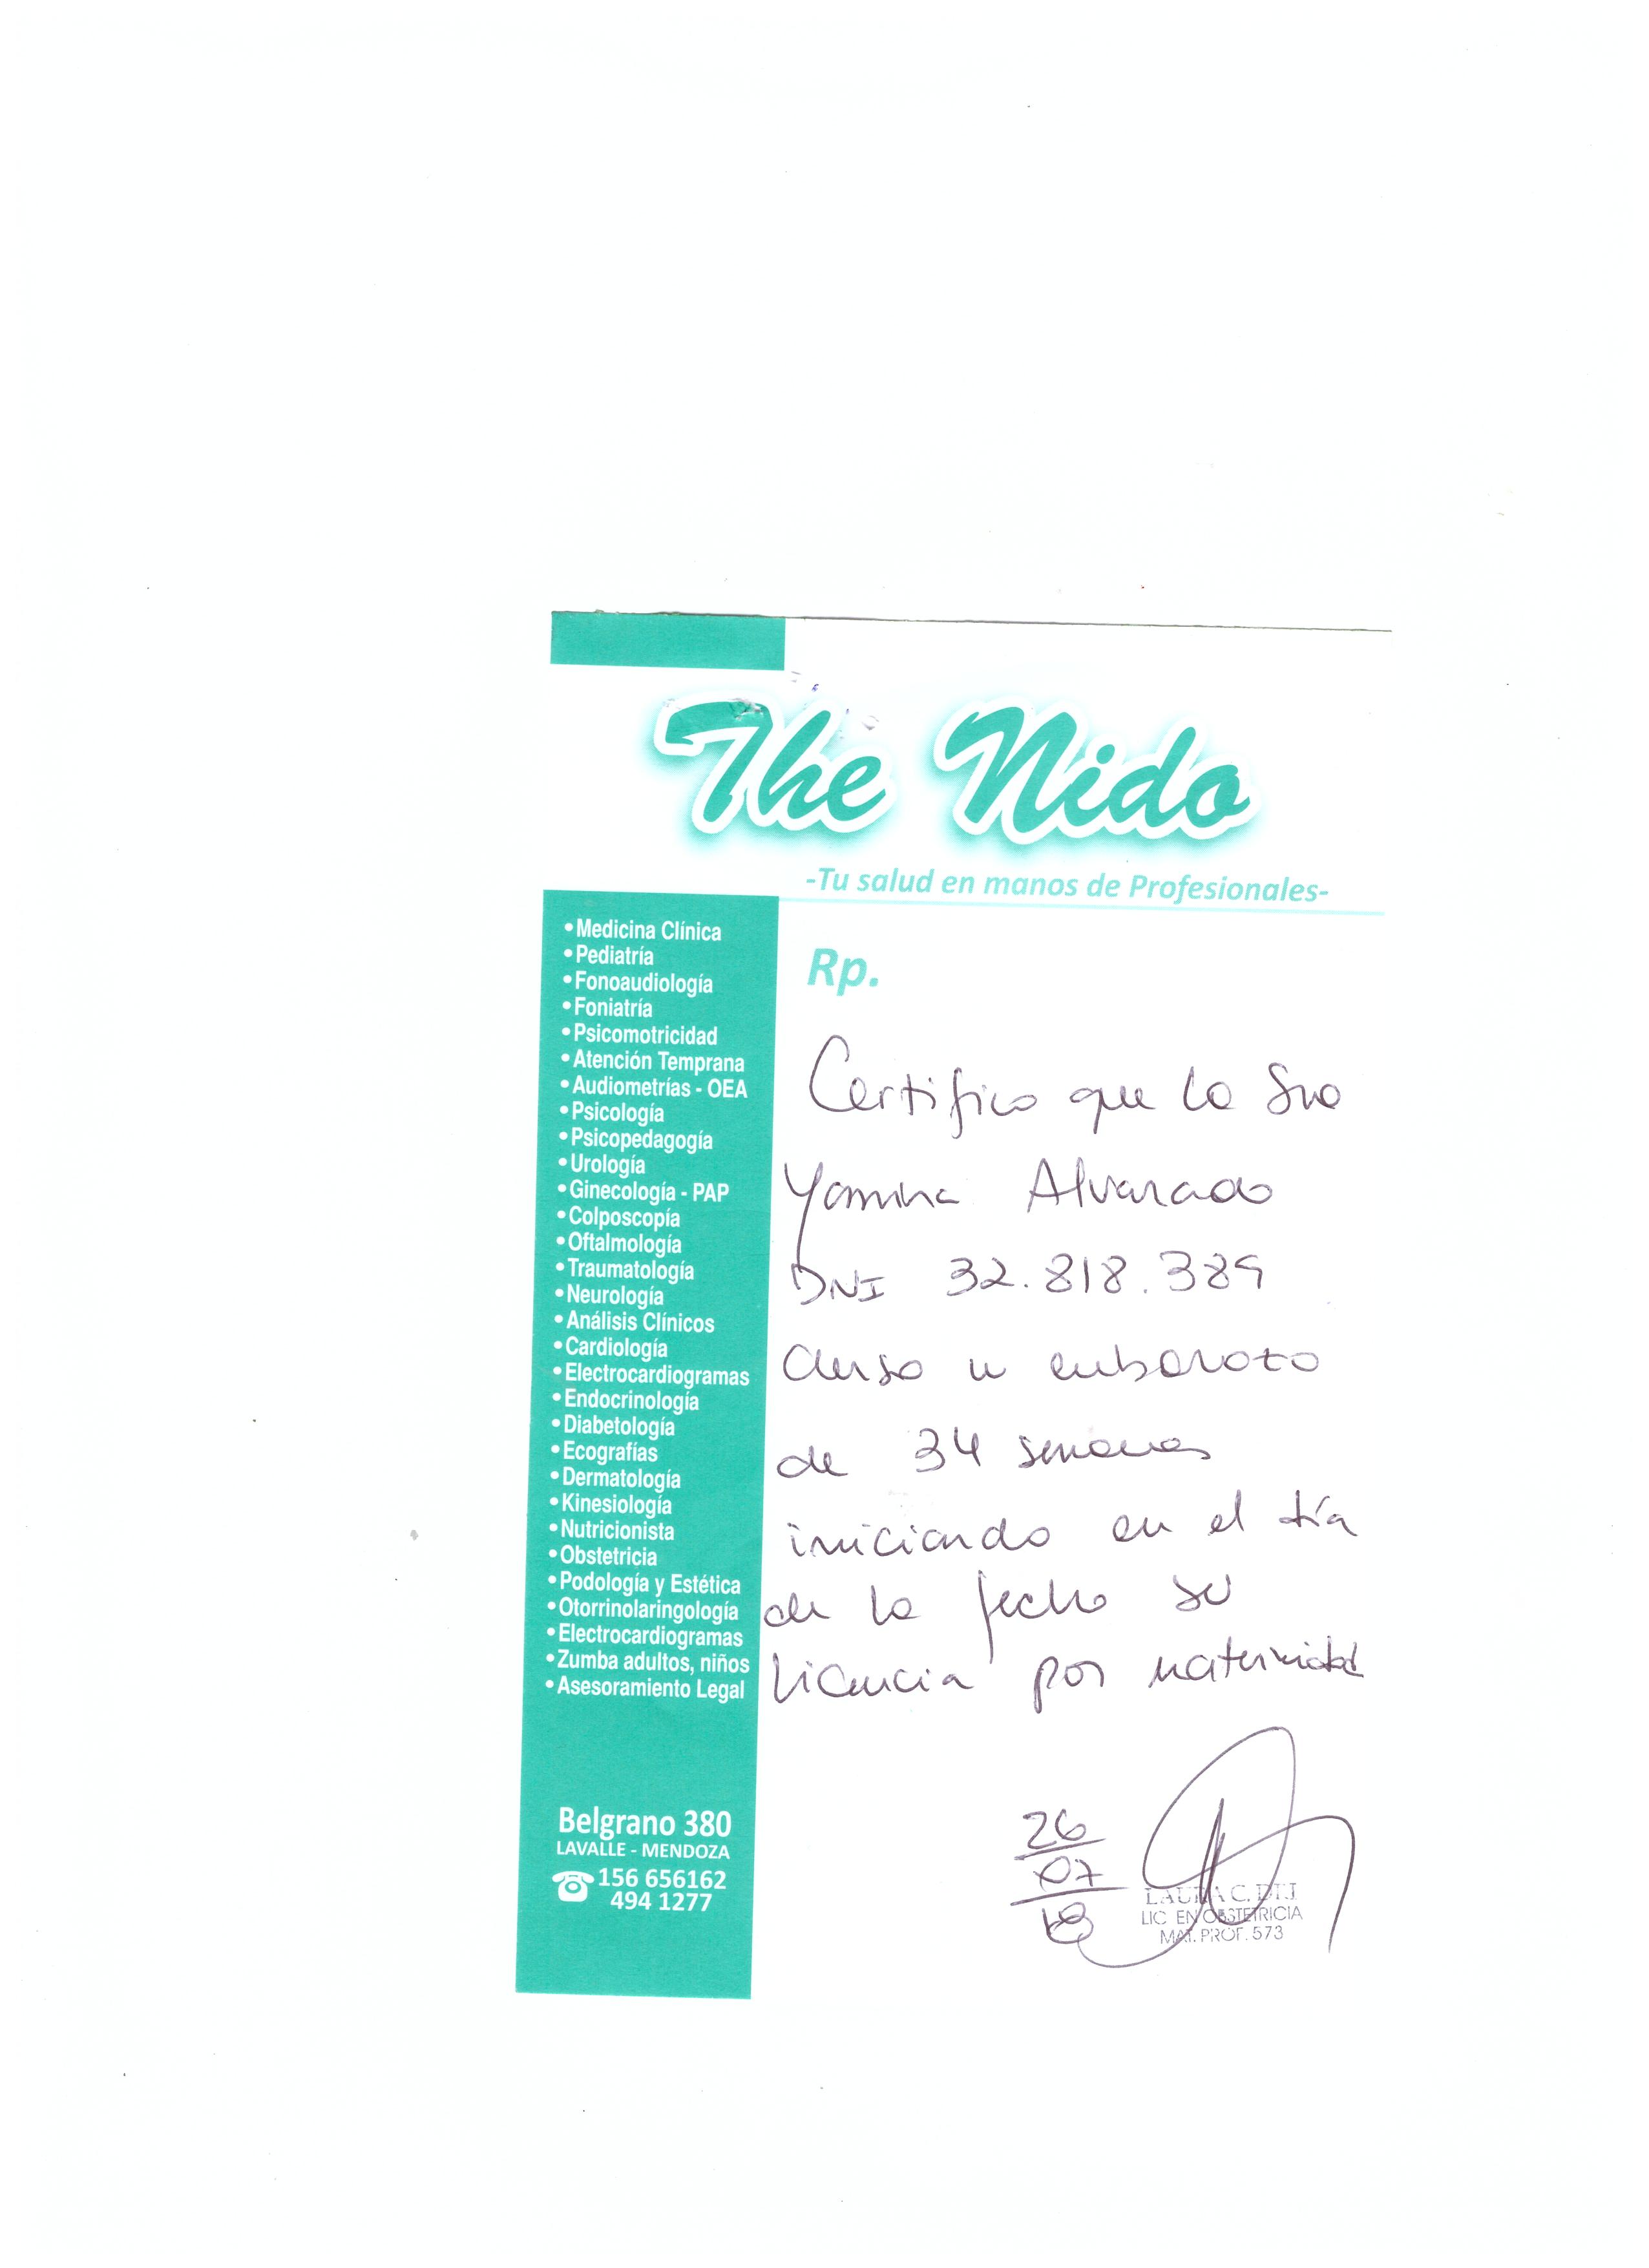 The Nido
-Tu salud en manos de Profesionales-
• Medicina Clínica
• Pediatría
• Fonoaudiología
• Foniatría
• Psicomotricidad
• Atención Temprana
• Audiometrías - OEA
• Psicología
• Psicopedagogía
• Urología
• Ginecología - PAP
• Colposcopía
• Oftalmología
• Traumatología
• Neurología
• Análisis Clínicos
• Cardiología
• Electrocardiogramas
• Endocrinología
• Diabetología
• Ecografías
• Dermatología
• Kinesiología
• Nutricionista
• Obstetricia
• Podología y Estética
• Otorrinolaringología
• Electrocardiogramas
• Zumba adultos, niños
• Asesoramiento Legal
Belgrano 380
LAVALLE - MENDOZA
156 656162
494 1277
Rp.
Certifico que la Sra
Yamina Alvarado
DNI 32.818.389
cursa un embarazo
de 34 semanas
iniciando en el día
de la fecha su
licencia por maternidad
26
07
18
LAURA C.
LIC EN OBSTETRICIA
MAT. PROF. 573